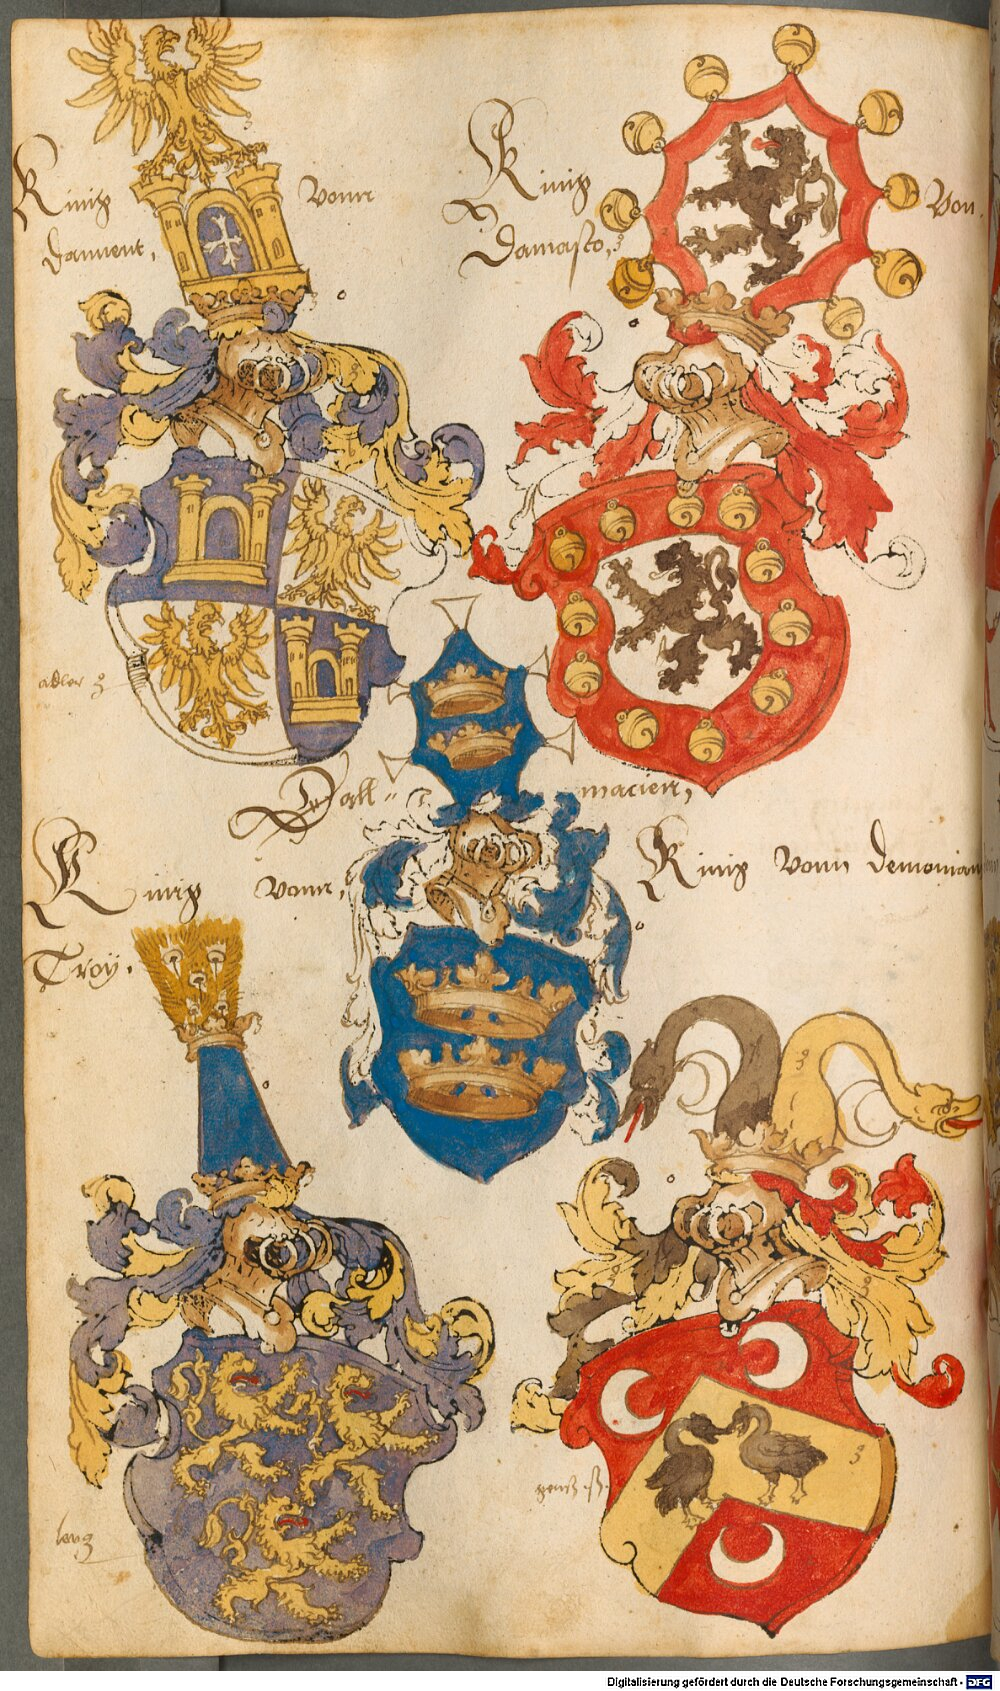 König vonn
dannent,
König von
Damasto,
adler
Dall- macien,
König vonn,
Troÿ.
König vonn demonian
Digitalisierung gefördert durch die Deutsche Forschungsgemeinschaft - DFG